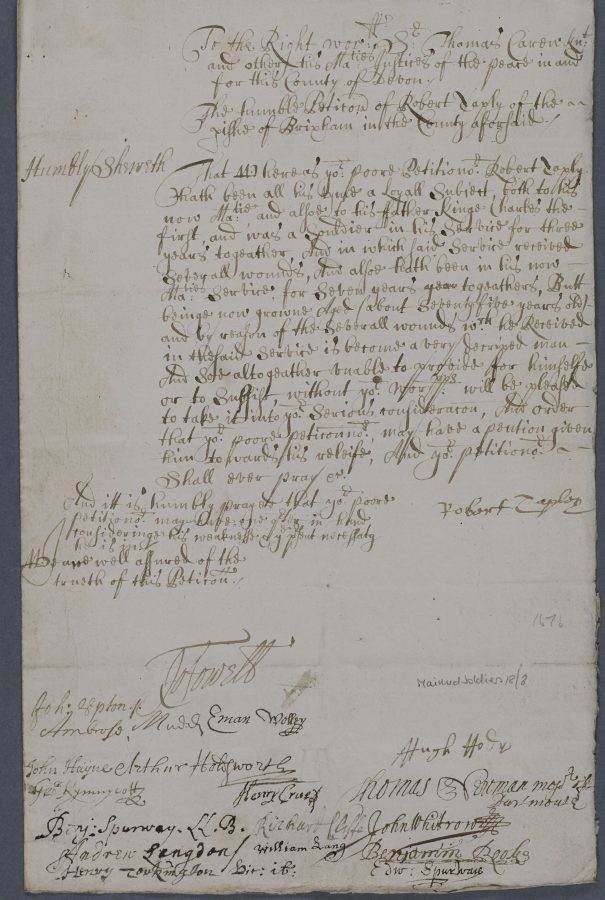 To the Right wor:ll Sr: Thomas Carew Knt:
and others his Maties Justices of the peace in and
for this County of Devon:
The humble Peticon of Robert Taply of the
pishe of Brixham in the County aforsaid:
Humbly Sheweth
That Whereas yor: poore Petitionor: Robert Taply
hath been all his tyme a Loyall Subject both to his
now Matie: and alsoe to his ffather Kinge Charles the
first, and was a Souldier in his Service for three
years togeather, And in which said Service received
Severall wounds, And alsoe hath been in his now
Maties Service for Seven years togeathers, Butt
beinge now growne Aged (about Seventy five years old)
and by reason of the Severall wounds wch he Received
in thesaid Service is become a very decriped man
And Soe altogeather unable to provide for himselfe
or to Subsist without yor: Worspps: will be pleased
to take it into yor: Serious consideracon, And order
that yor: poore peticonnor: may have a pention given
him towards his releife, And yor: petitionor:
Shall ever pray &c:
And itt is humbly prayed that yor: poore
petitionor: may have one in hand
consideringe his weaknesse & psent necessaty
Robert Taploy
We are well assured of the
trueth of this Peticon:
1676
Maimed Soldiers 18/3
Joh: Upton
Ambrose Mudd Eman Wolley
Hugh Hody
John Hayne Arthur Holdsworth
Henry Cruse
Thomas
Benj: Spurway. LL.B. Richard Cliffe John Whitrow
Andrew Langdon William Lang Benjamin Rooke
Henry Torkington Vic: ib: Edw: Spurway